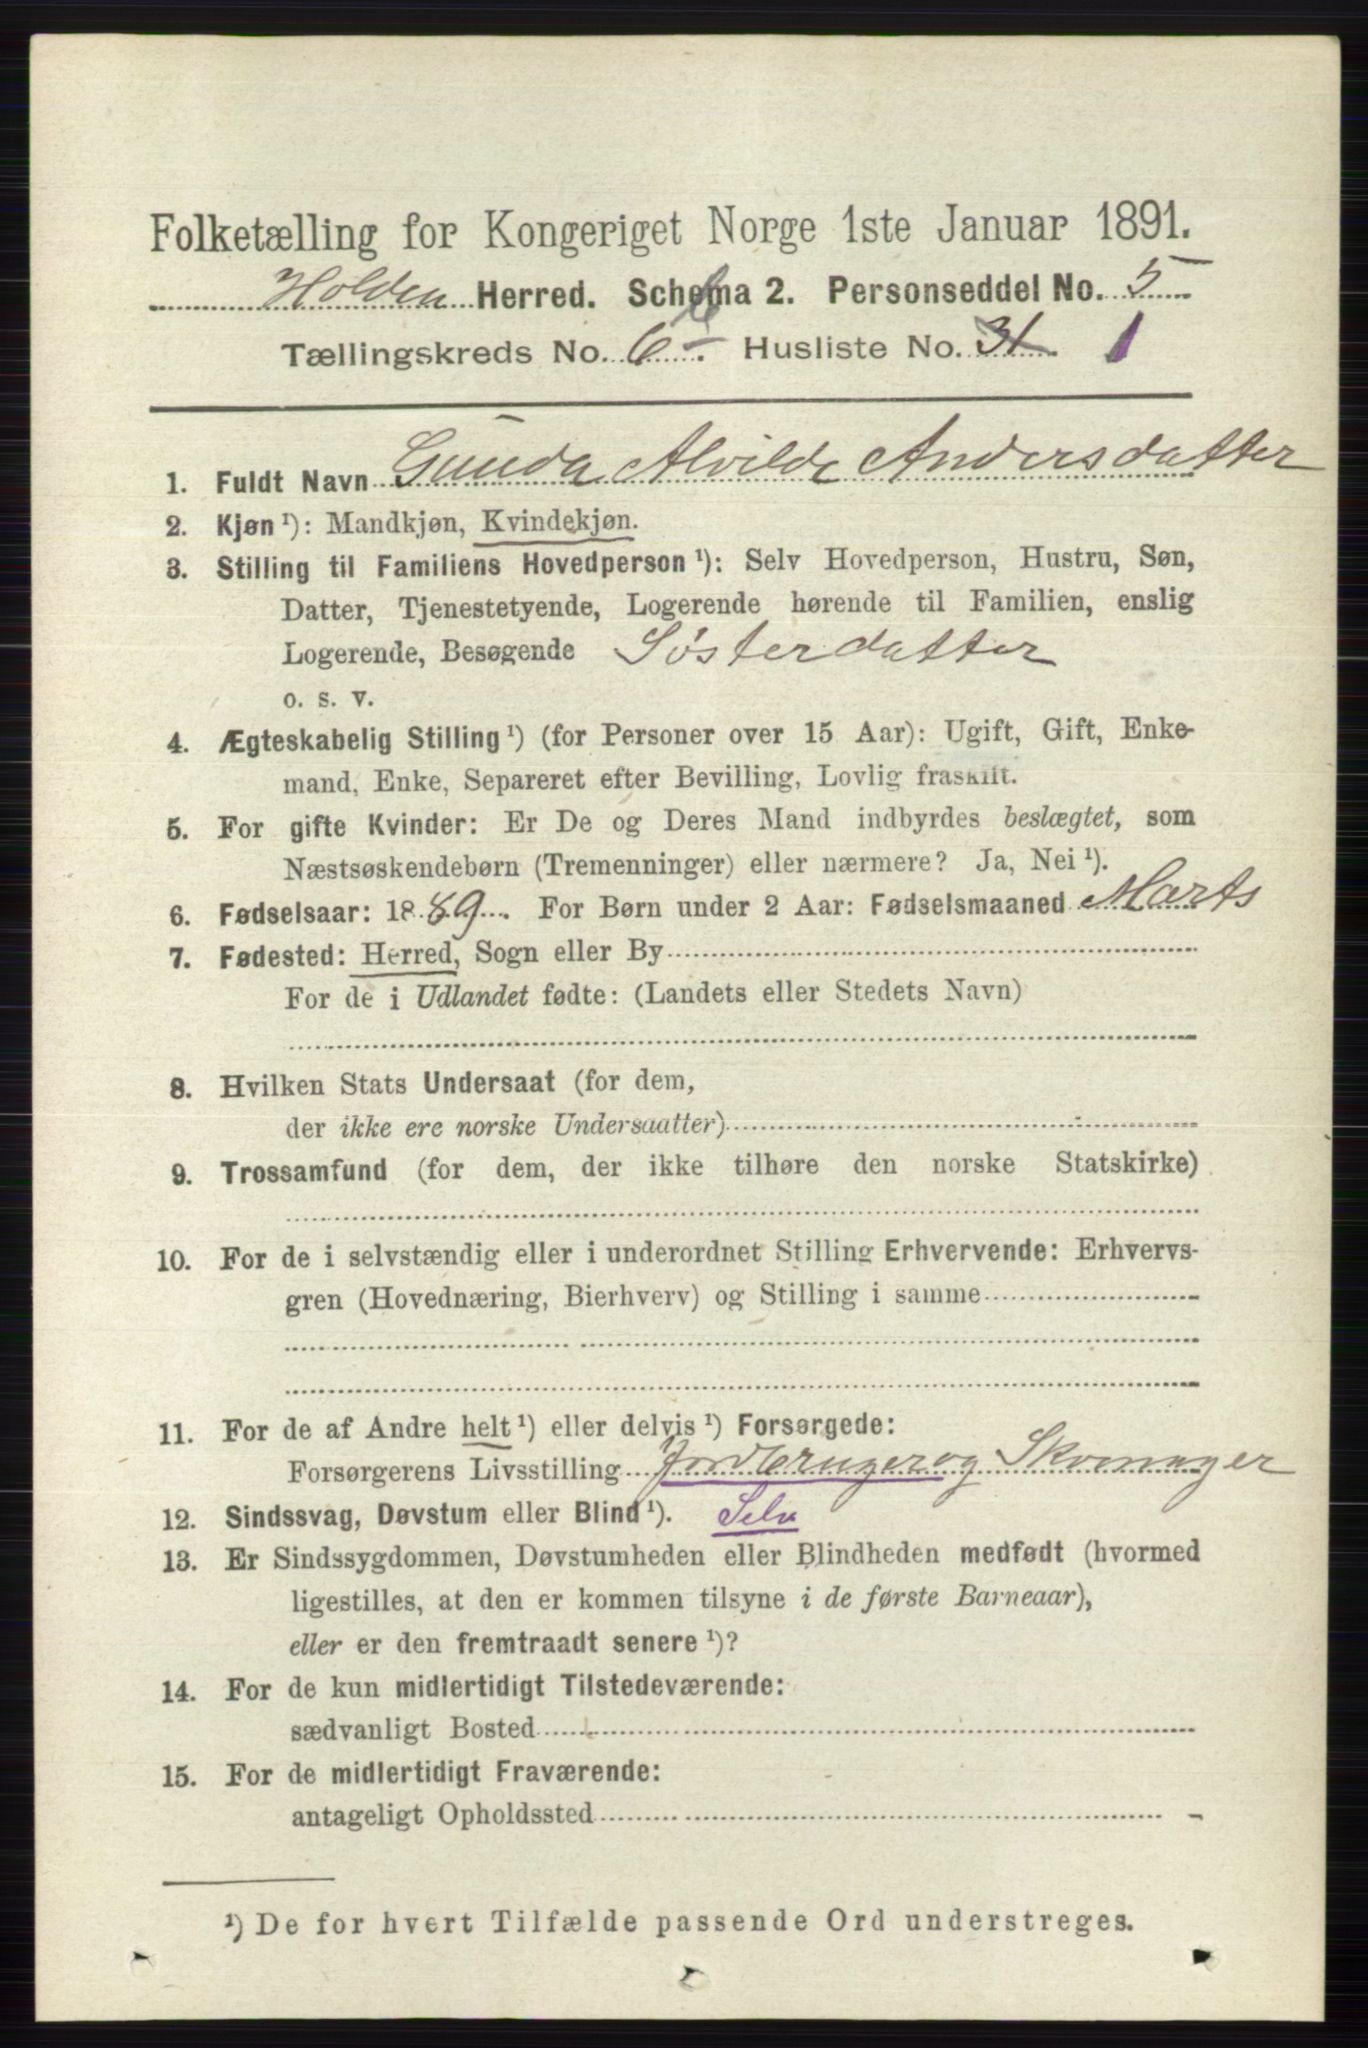 Folketælling for Kongeriget Norge 1ste Januar 1891.
Holden Herred. Schema 2. Personseddel No. 5
6
Tællingskreds No. 6 Husliste No. 31. 1
1. Fuldt Navn Gunda Alvilde Andersdatter
2. Kjøn ¹): Mandkjøn, Kvindekjøn.
3. Stilling til Familiens Hovedperson ¹): Selv Hovedperson, Hustru, Søn,
Datter, Tjenestetyende, Logerende hørende til Familien, enslig
Logerende, Besøgende Søsterdatter
o. s. v.
4. Ægteskabelig Stilling ¹) (for Personer over 15 Aar): Ugift, Gift, Enke-
mand, Enke, Separeret efter Bevilling, Lovlig fraskilt.
5. For gifte Kvinder: Er De og Deres Mand indbyrdes beslægtet, som
Næstsøskendebørn (Tremenninger) eller nærmere? Ja, Nei ¹).
6. Fødselsaar: 1889. For Børn under 2 Aar: Fødselsmaaned Marts
7. Fødested: Herred, Sogn eller By
For de i Udlandet fødte: (Landets eller Stedets Navn)
8. Hvilken Stats Undersaat (for dem,
der ikke ere norske Undersaatter)
9. Trossamfund (for dem, der ikke tilhøre den norske Statskirke)
10. For de i selvstændig eller i underordnet Stilling Erhvervende: Erhvervs-
gren (Hovednæring, Bierhverv) og Stilling i samme
11. For de af Andre helt ¹) eller delvis ¹) Forsørgede:
Forsørgerens Livsstilling Jordbruger og Skomager
12. Sindssvag, Døvstum eller Blind ¹). Selv
13. Er Sindssygdommen, Døvstumheden eller Blindheden medfødt (hvormed
ligestilles, at den er kommen tilsyne i de første Barneaar),
eller er den fremtraadt senere ¹)?
14. For de kun midlertidigt Tilstedeværende:
sædvanligt Bosted
15. For de midlertidigt Fraværende:
antageligt Opholdssted
¹) De for hvert Tilfælde passende Ord understreges.